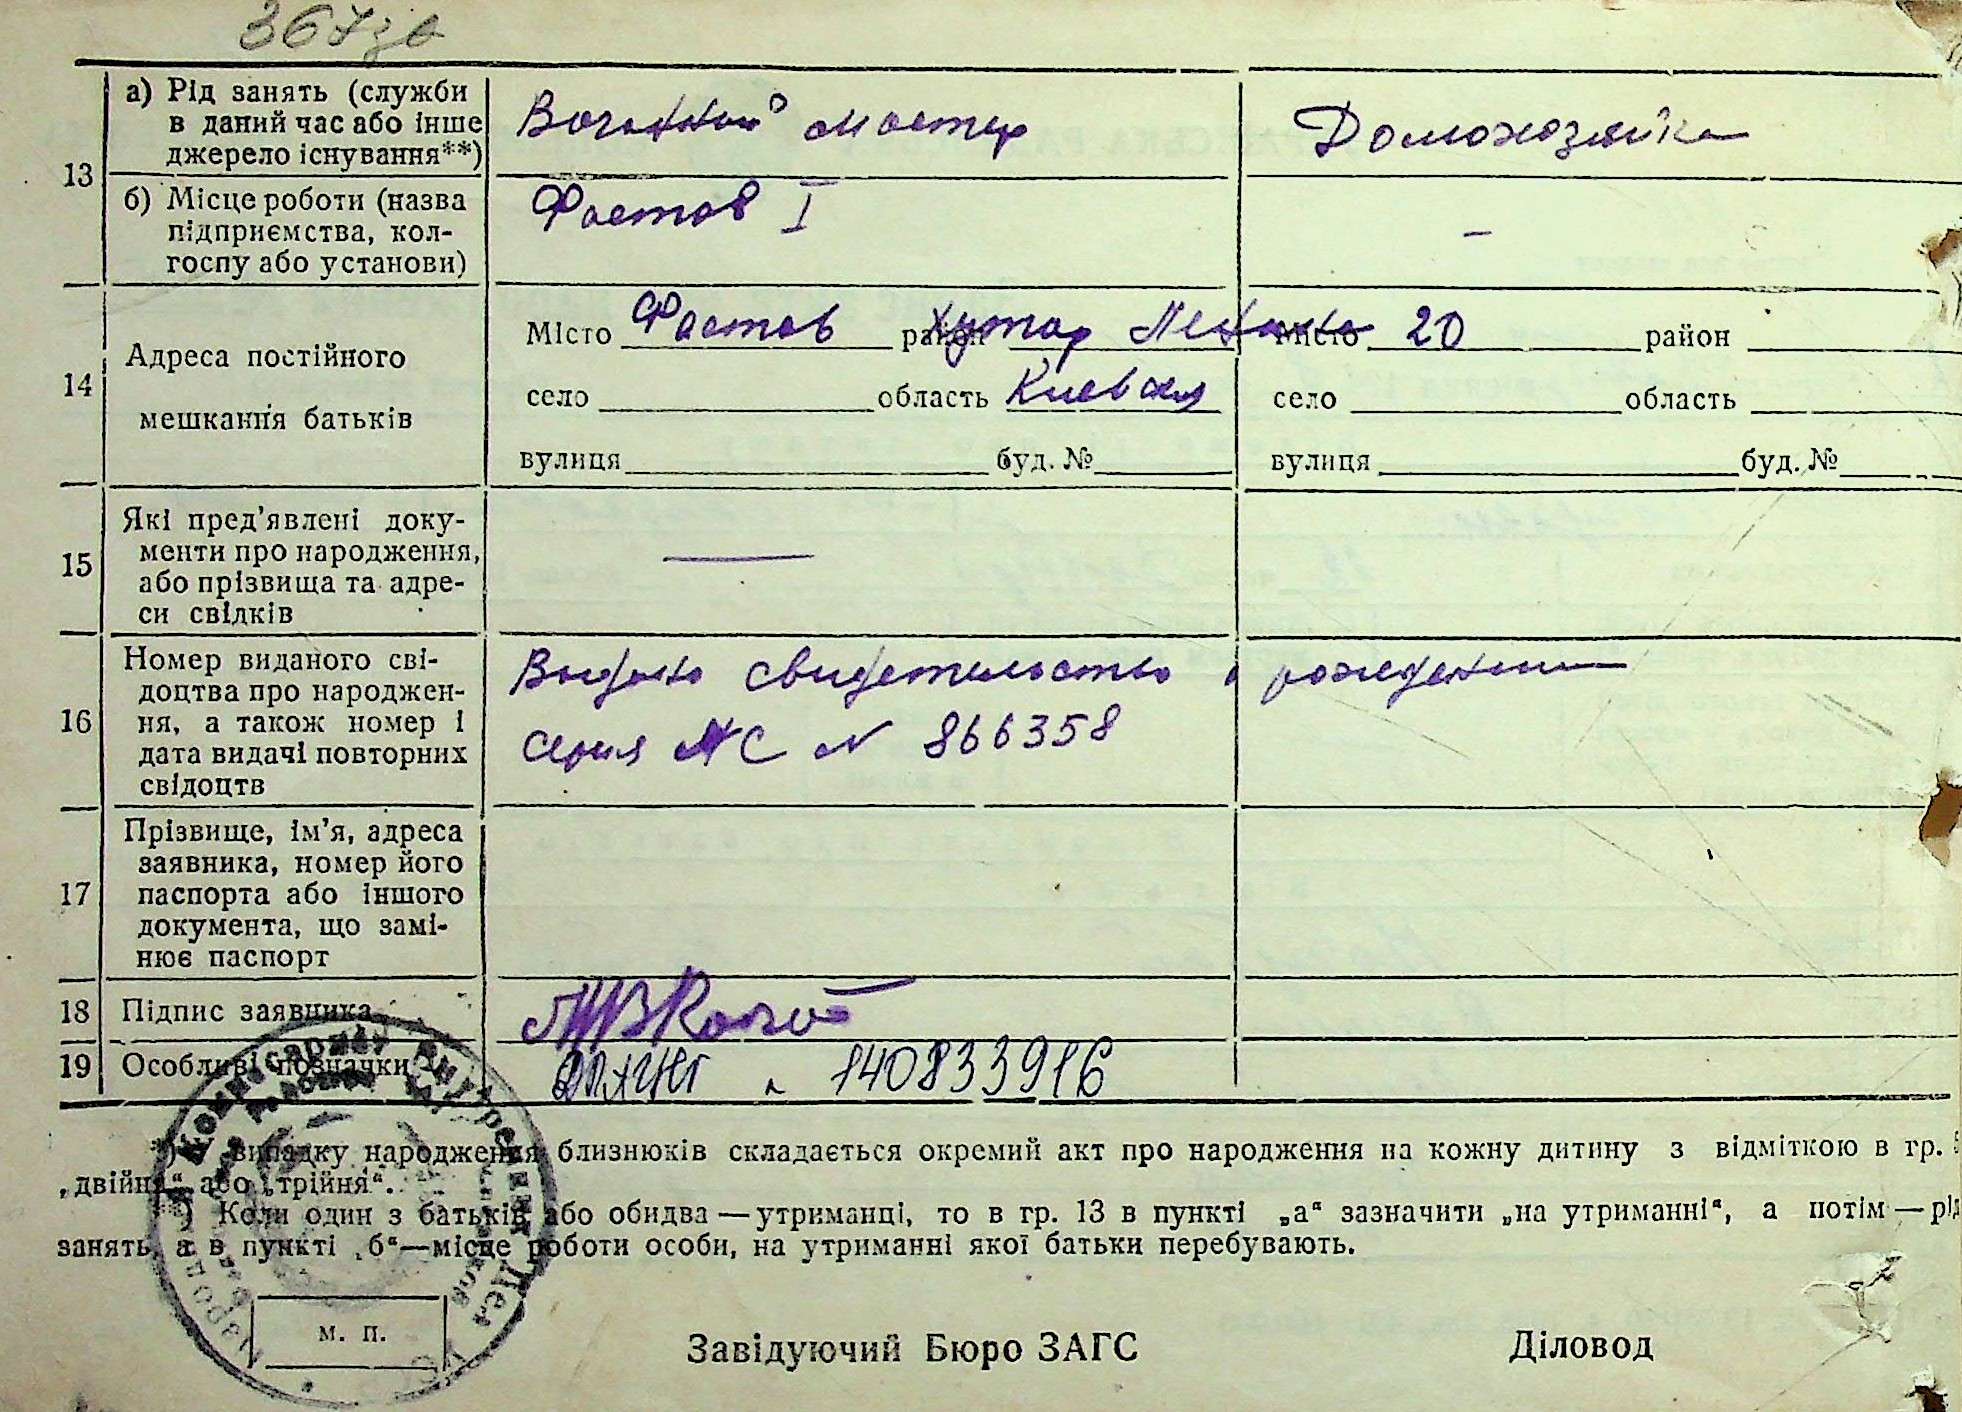 367зв
а) Рід занять (служби
в даний час або інше
джерело існування**)
13
мастер
Домохозяйка
б) Місце роботи (назва
підприємства, кол-
госпу або установи)
Фастов I
—
14
Адреса постійного
мешкання батьків
Місто Фастов район Хутор Ленина місто 20 район
село область Киевская село область
вулиця буд. № вулиця буд. №
15
Які пред’явлені доку-
менти про народження,
або прізвища та адре-
си свідків
—
16
Номер виданого сві-
доцтва про народжен-
ня, а також номер і
дата видачі повторних
свідоцтв
Выдано свидетельство о рождении
серия № 866358
17
Прізвище, ім’я, адреса
заявника, номер його
паспорта або іншого
документа, що замі-
нює паспорт
18 Підпис заявника
19 Особливі позначки 140833916
*) У випадку народження близнюків складається окремий акт про народження на кожну дитину з відміткою в гр. 5
„двійня“ або „трійня“.
**) Коли один з батьків або обидва — утриманці, то в гр. 13 в пункті „а“ зазначити „на утриманні“, а потім — рід
занять, а в пункті „б“—місце роботи особи, на утриманні якої батьки перебувають.
м. п.
Завідуючий Бюро ЗАГС
Діловод